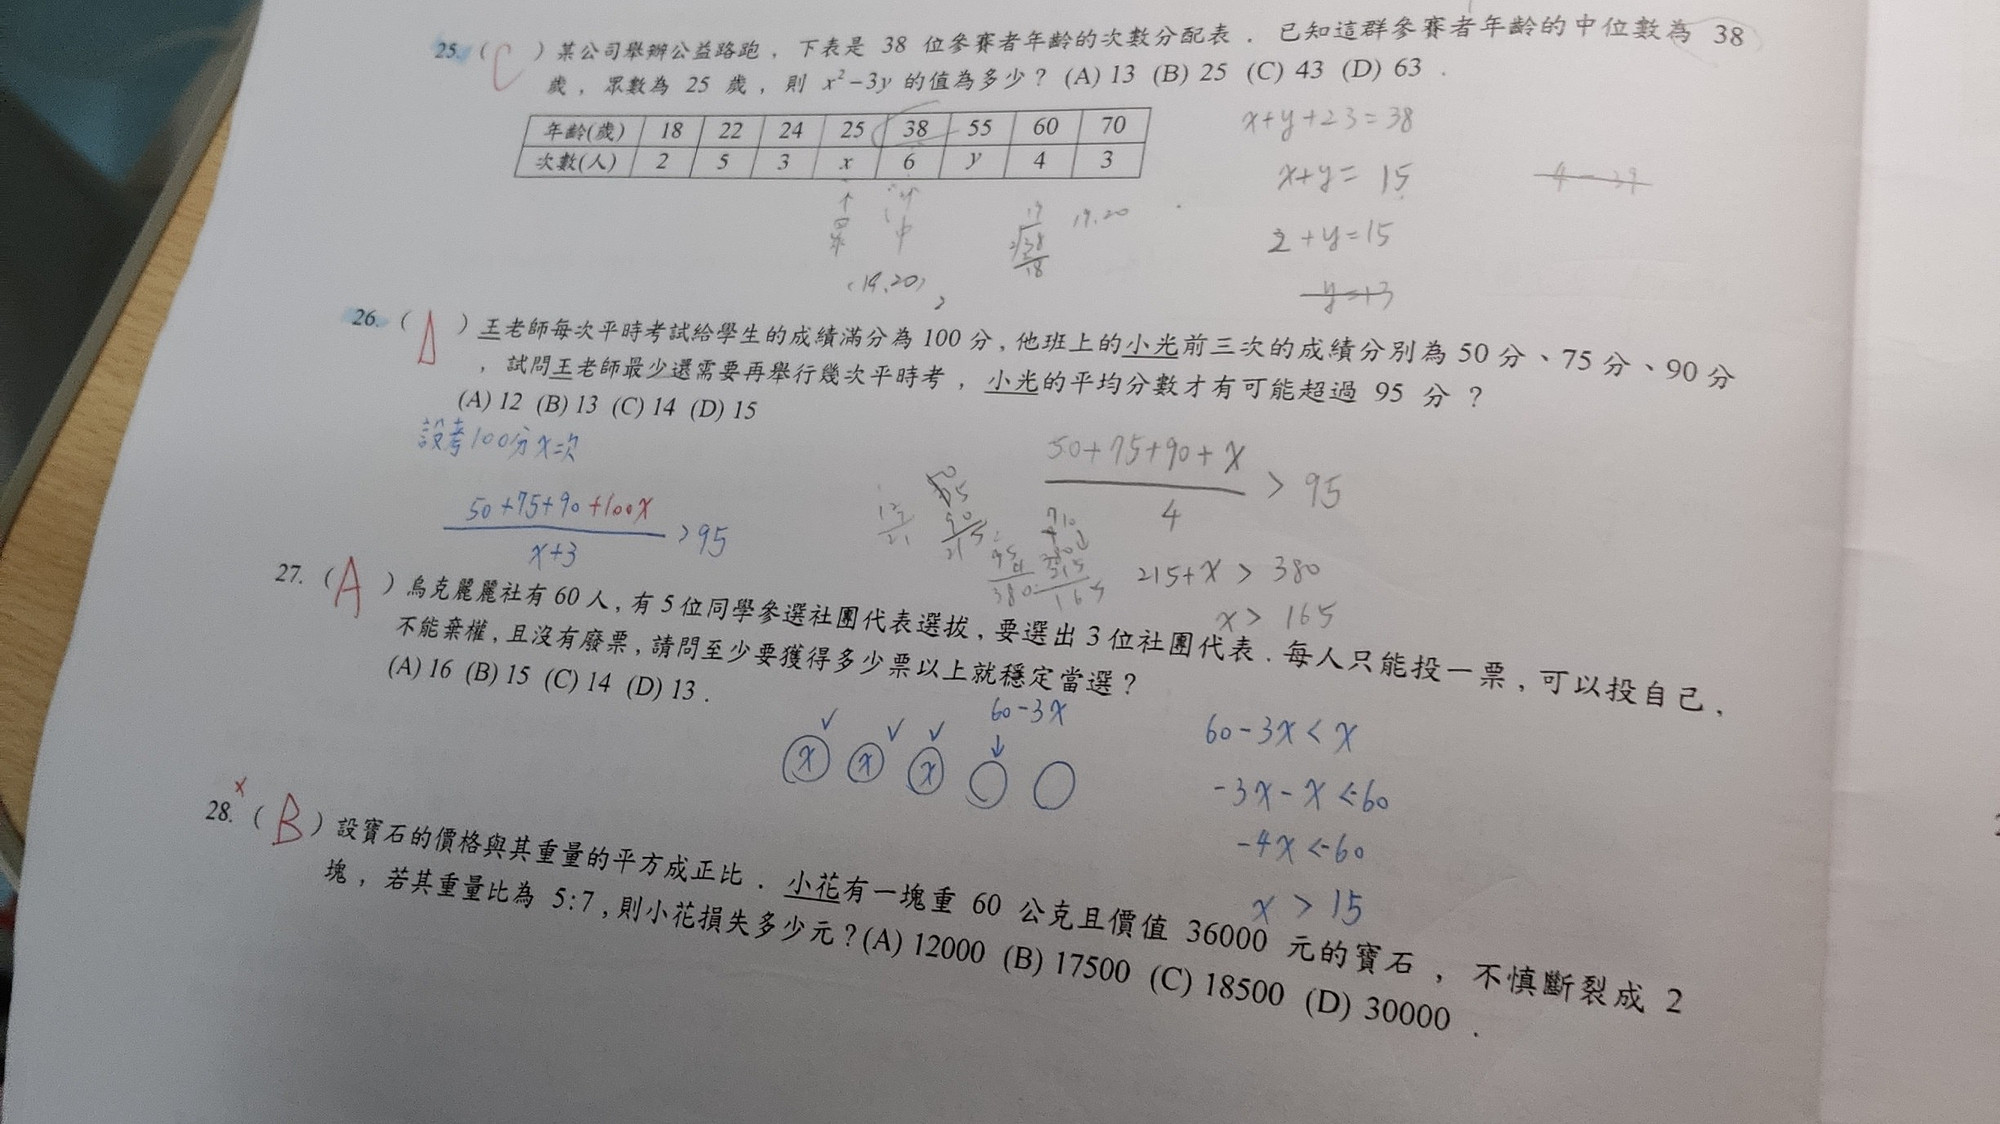 25. ( C ) 某公司舉辦公益路跑，下表是 38 位參賽者年齡的次數分配表．已知這群參賽者年齡的中位數為 38
歲，眾數為 25 歲，則 x²－3y 的值為多少？(A) 13 (B) 25 (C) 43 (D) 63．
年齡(歲) 18 22 24 25 38 55 60 70
次數(人) 2 5 3 x 6 y 4 3
x+y+23=38
x+y=15
2+y=15
y=13
↑
眾
中
(19.20)
19
2√38
18
19.20
26. ( D ) 王老師每次平時考試給學生的成績滿分為 100 分，他班上的小光前三次的成績分別為 50 分、75 分、90 分
，試問王老師最少還需要再舉行幾次平時考，小光的平均分數才有可能超過 95 分？
(A) 12 (B) 13 (C) 14 (D) 15
設考100分x次
50+75+90+100x
x+3
>95
50+75+90+x
4
> 95
215+x > 380
x > 165
27. ( A ) 烏克麗麗社有 60 人，有 5 位同學參選社團代表選拔，要選出 3 位社團代表．每人只能投一票，可以投自己，
不能棄權，且沒有廢票，請問至少要獲得多少票以上就穩定當選？
(A) 16 (B) 15 (C) 14 (D) 13．
60-3x
↓
x x x
60-3x<x
-3x-x<-60
-4x<-60
x > 15
x
28. ( B ) 設寶石的價格與其重量的平方成正比．小花有一塊重 60 公克且價值 36000 元的寶石，不慎斷裂成 2
塊，若其重量比為 5:7，則小花損失多少元？(A) 12000 (B) 17500 (C) 18500 (D) 30000．